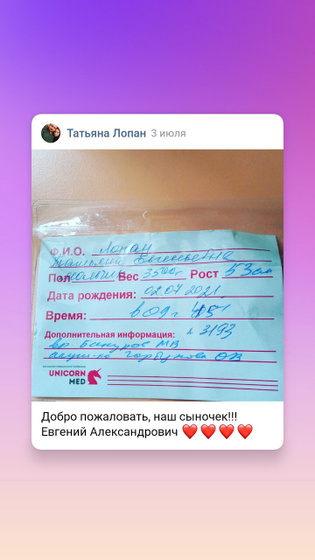 Татьяна Лопан 3 июля
Ф.И.О. Лопан
Татьяна Евгеньевна
Пол: мальчик Вес 3500г Рост 53 см
Дата рождения: 02.07.2021
Время: в 09 ч 45
Дополнительная информация: 3193
вр.
UNICORN
MED
Добро пожаловать, наш сыночек!!!
Евгений Александрович ❤️❤️❤️❤️